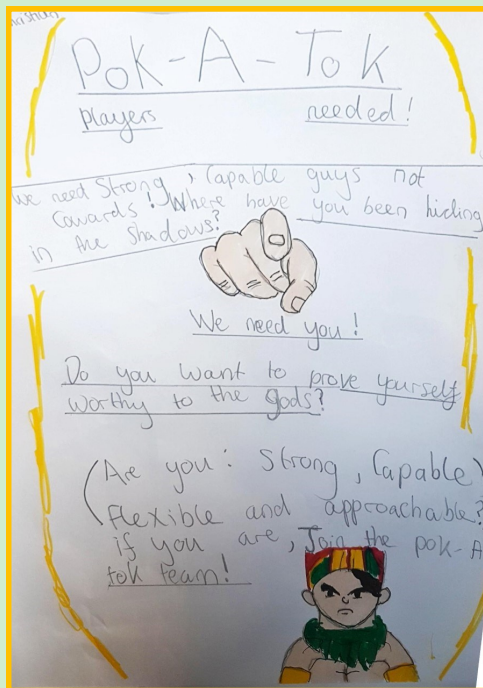 Pok-A-Tok
players needed!
we need Strong, Capable guys not
Cowards! Where have you been hiding
in the Shadows?
We need you!
Do you want to prove yourself
worthy to the gods?
(Are you: Strong, Capable)
(flexible and approachable?
if you are, Join the pok-A
tok team!